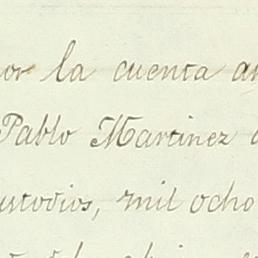 or la cuenta an
Pablo Martinez
ustodios, mil ocho